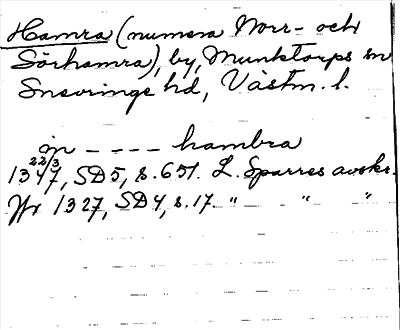 Hamra (numera Norr- och
Sörhamra), by, Munktorps sn
Snevringe hd, Västm. l.
in - - - - hambra
1347 22/3, SD5, s. 651. L. Sparres avskr.
1327, SD4, s. 17. " " "